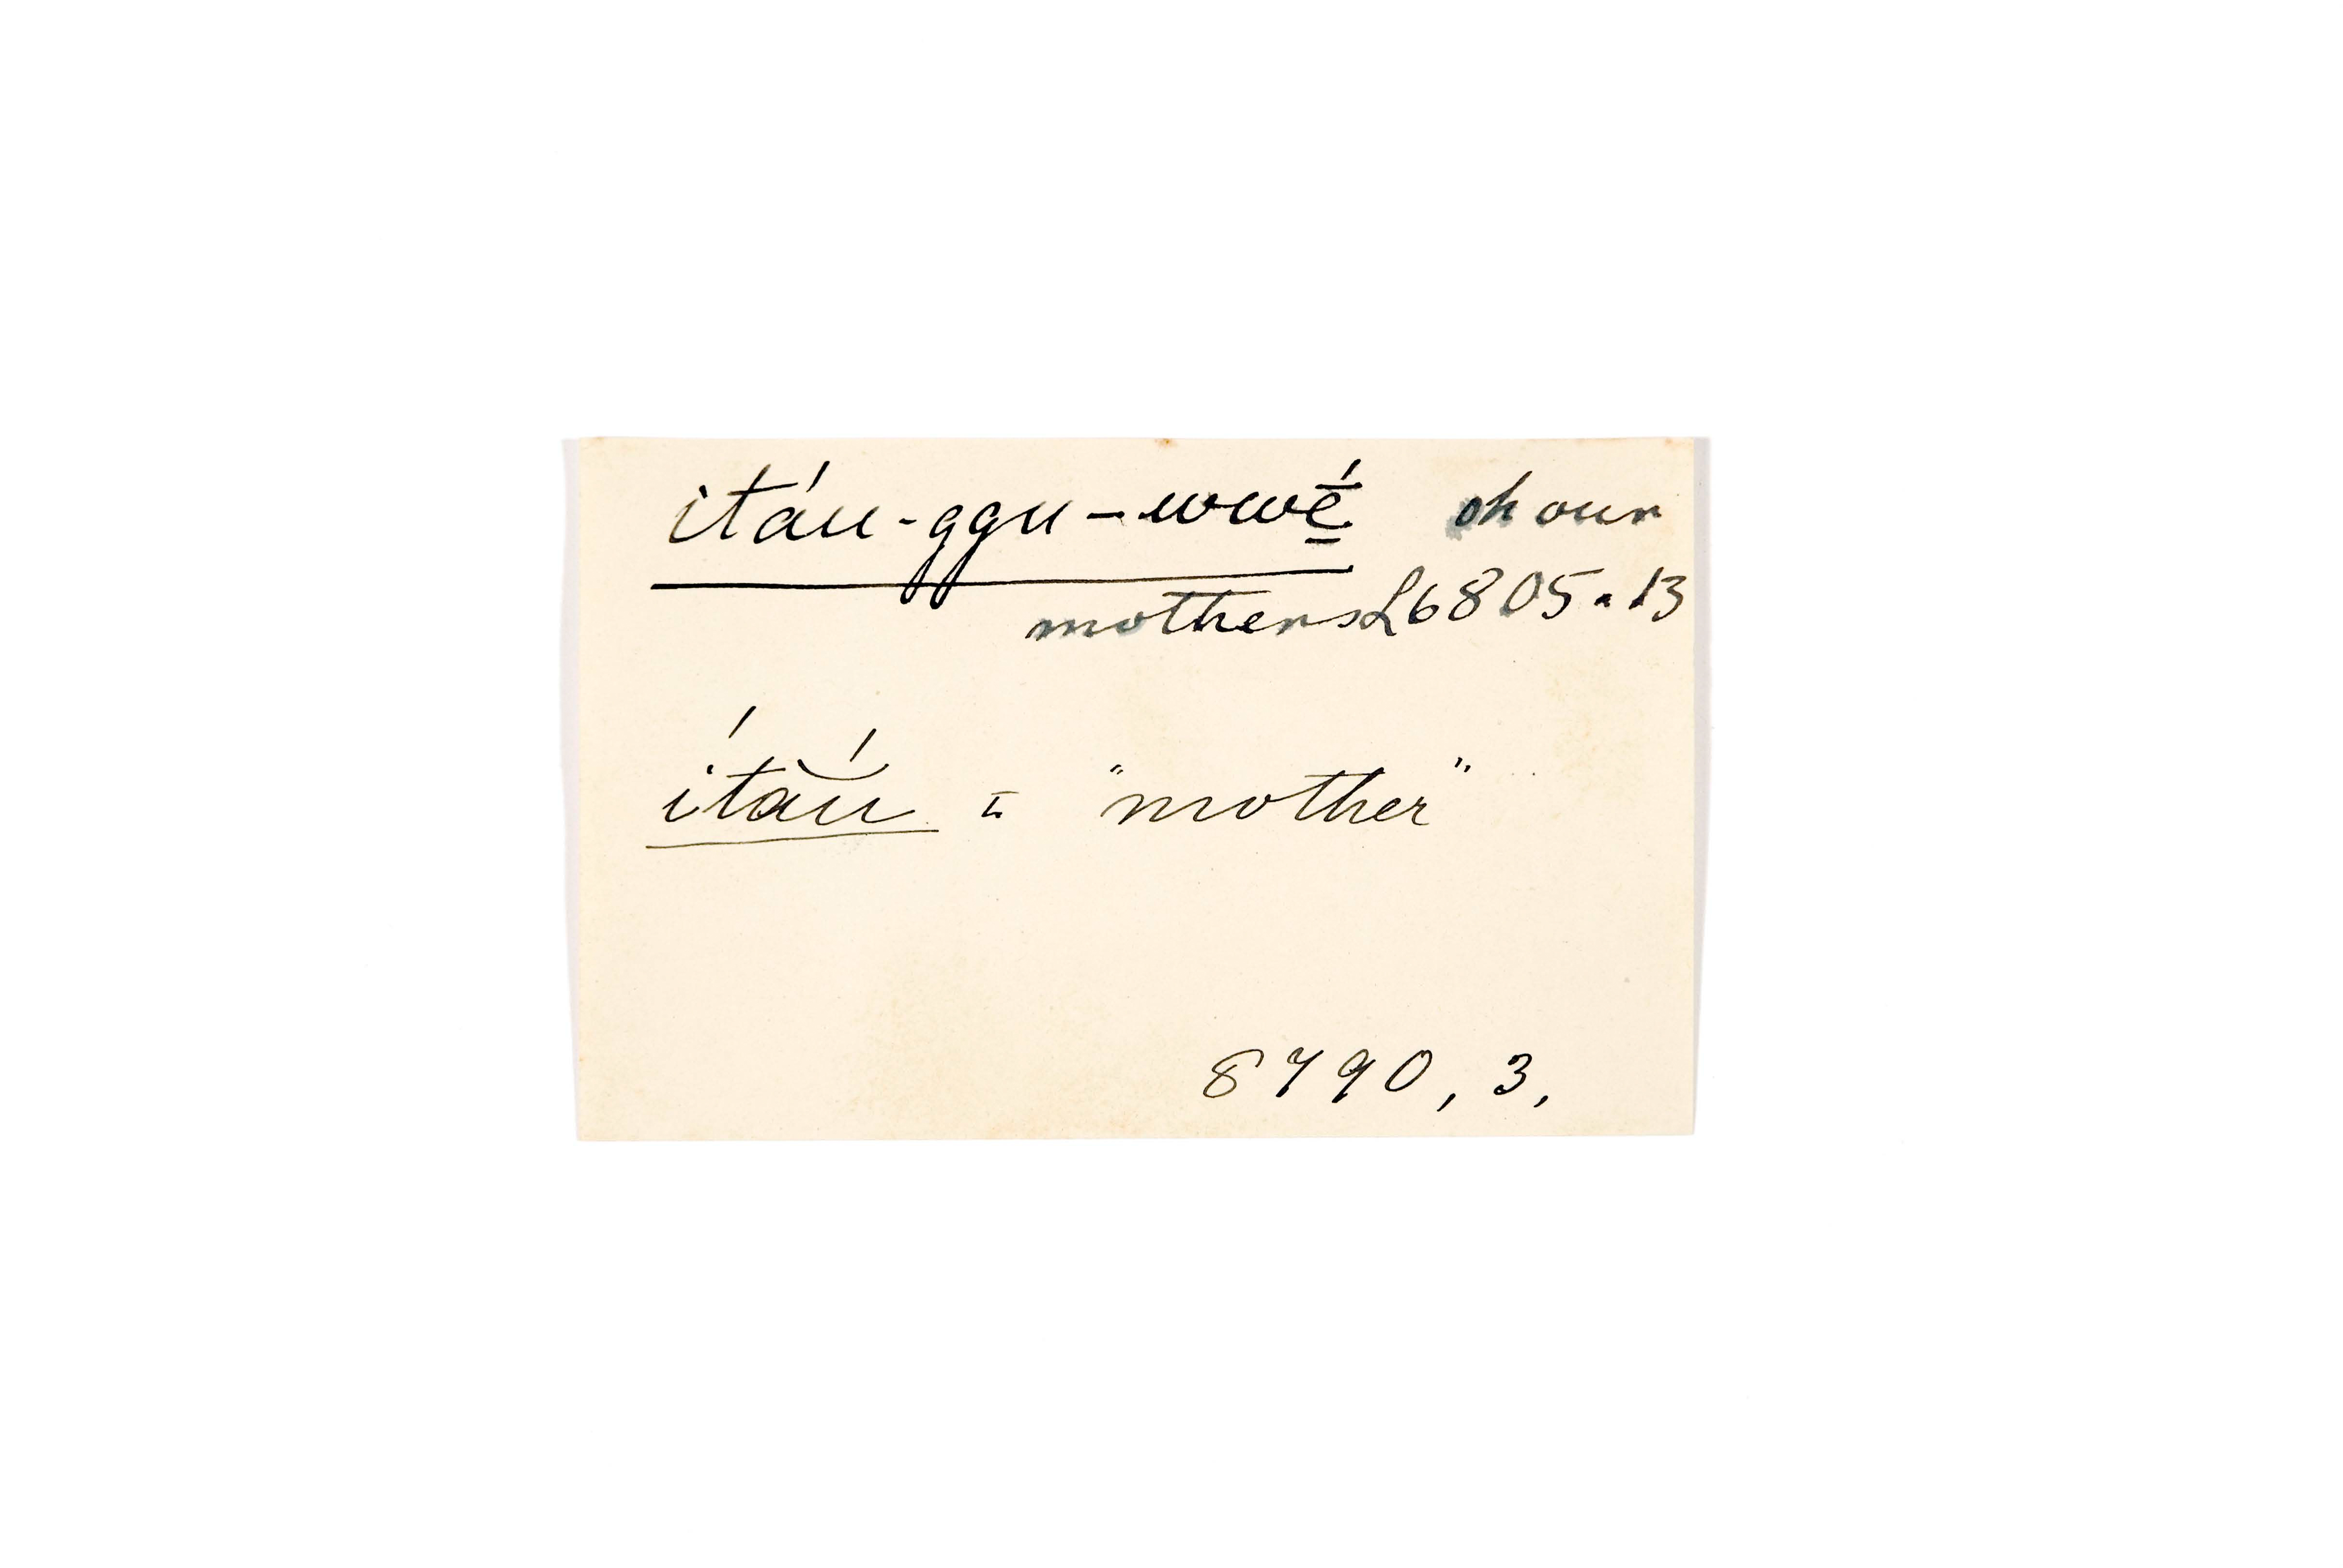 itáu-ggu-wwḗ̱ oh our
mothers L6805.13
íta͝ú = "mother"
8790, 3,